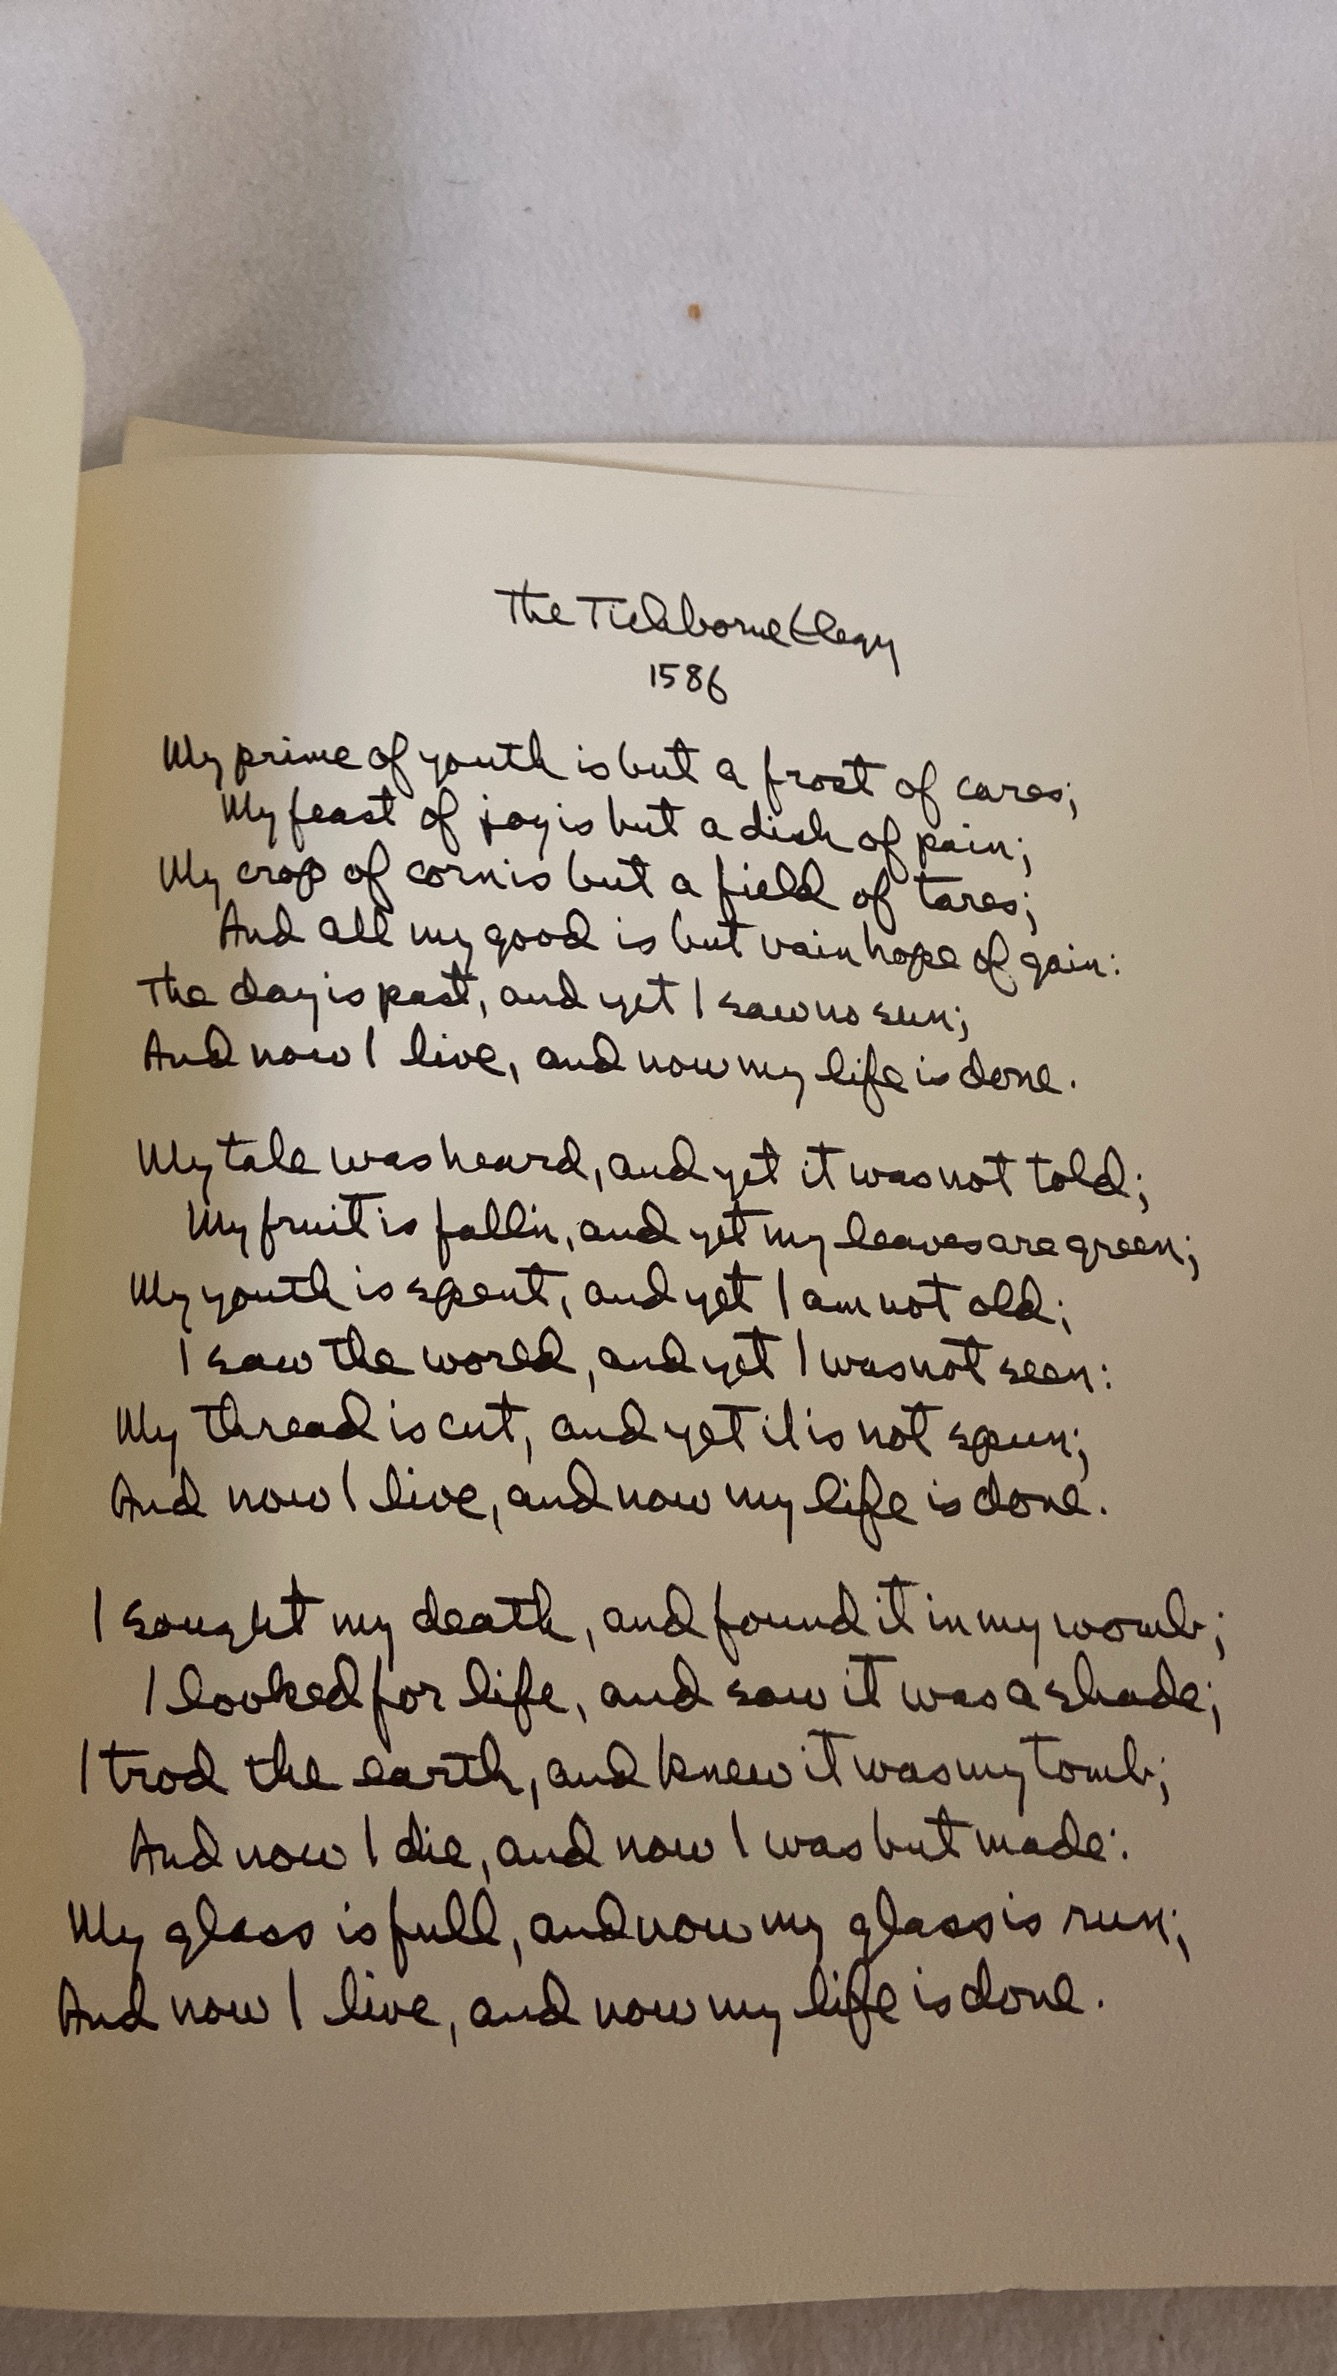 The Tichborne Elegy
1586
My prime of youth is but a frost of cares;
My feast of joy is but a dish of pain;
My crop of corn is but a field of tares;
And all my good is but vain hope of gain:
The day is past, and yet I saw no sun;
And now I live, and now my life is done.
My tale was heard, and yet it was not told;
My fruit is fall'n, and yet my leaves are green;
My youth is spent, and yet I am not old;
I saw the world, and yet I was not seen:
My thread is cut, and yet it is not spun;
And now I live, and now my life is done.
I sought my death, and found it in my womb;
I looked for life, and saw it was a shade;
I trod the earth, and knew it was my tomb;
And now I die, and now I was but made:
My glass is full, and now my glass is run;
And now I live, and now my life is done.